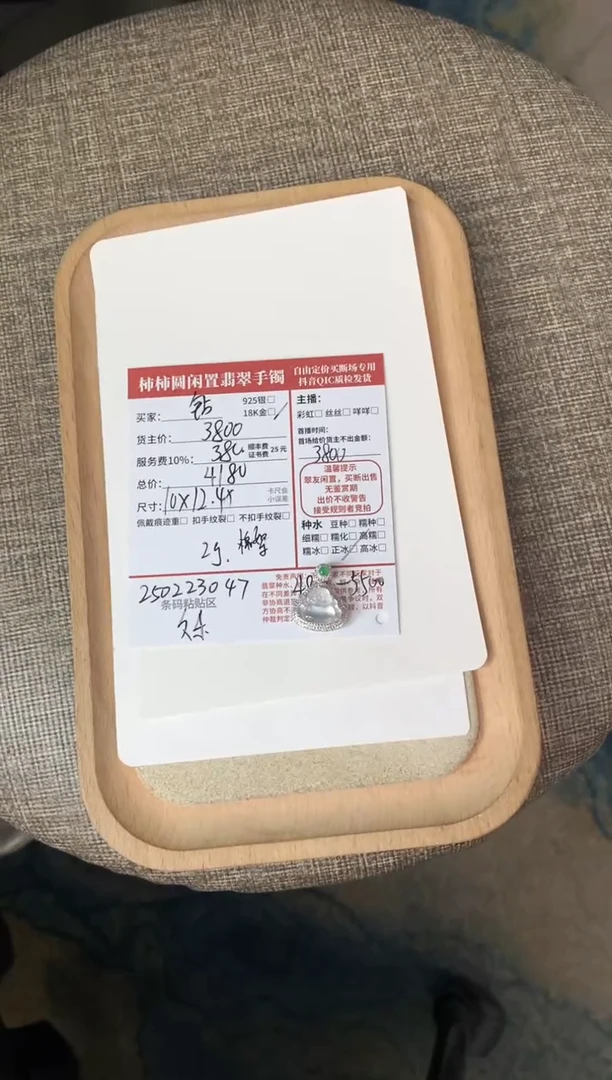 柿柿圆闲置翡翠手镯
自由定价买断场专用
抖音QIC质检发货
买家： 钻
925银□
18K金□
货主价： 3800
服务费10%： 380
顺丰费
证书费 25元
总价： 4180
尺寸： 10X12.4X
卡尺会
小误差
佩戴痕迹重□ 扣手纹裂□ 不扣手纹裂□
2g.
主播：
彩虹□ 丝丝□ 咩咩□
首播时间：
首场给价货主不出金额：
3800
温馨提示
翠友闲置，买断出售
无鉴赏期
出价不收警告
接受规则者竞拍
种水 豆种□ 糯种□
细糯□ 糯化□ 高糯□
糯冰□ 正冰□ 高冰□
25022304 7
条码粘贴区